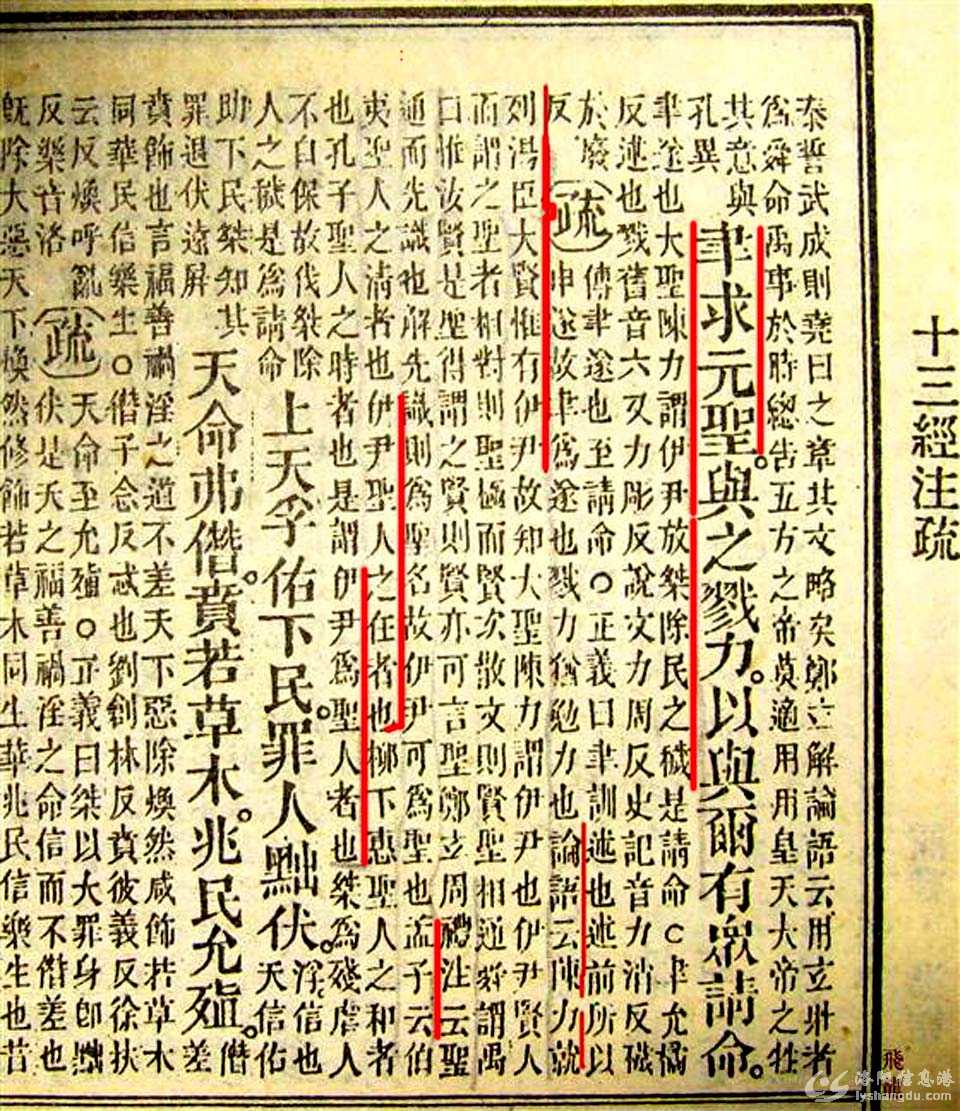 十三經注疏
泰誓武成則堯曰之章其文略矣鄭玄解論語云用玄牡者
為舜命禹事於時總告五方之帝莫適用用皇天大帝之牲
其意與
孔異
聿求元聖。與之戮力。以與爾有眾請命。
聿遂也大聖陳力謂伊尹放桀除民之穢是請命○聿允橘
反述也戮舊音六又力彫反說文力周反史記音力消反穢
於廢
反
疏
傳聿遂也至請命○正義曰聿訓述也述前所以
申遂故聿為遂也戮力猶勉力也論語云陳力就
列湯臣大賢惟有伊尹故知大聖陳力謂伊尹也伊尹賢人
而謂之聖者相對則聖極而賢次散文則賢聖相通舜謂禹
曰惟汝賢是聖得謂之賢則賢亦可言聖鄭玄周禮注云聖
通而先識也解先識則為聖名故伊尹可為聖也孟子云伯
夷聖人之清者也伊尹聖人之任者也柳下惠聖人之和者
也孔子聖人之時者也是謂伊尹為聖人者也桀為殘虐人
不自保故伐桀除
人之穢是為請命
上天孚佑下民。罪人黜伏。
孚信也
天信佑
助下民桀知其
罪退伏遠屏
天命弗僭。賁若草木。兆民允殖。
僭
差
賁飾也言福善禍淫之道不差天下惡除煥然咸飾若草木
同華民信樂生○僭子念反忒也劉創林反賁彼義反徐扶
云反煥呼亂
反樂音洛
疏
天命至允殖○正義曰桀以大罪身即黜
伏是天之福善禍淫之命信而不僭差也
既除大惡天下煥然修飾若草木同生華兆民信樂生也昔
洛阳信息港
lyshangdu.com